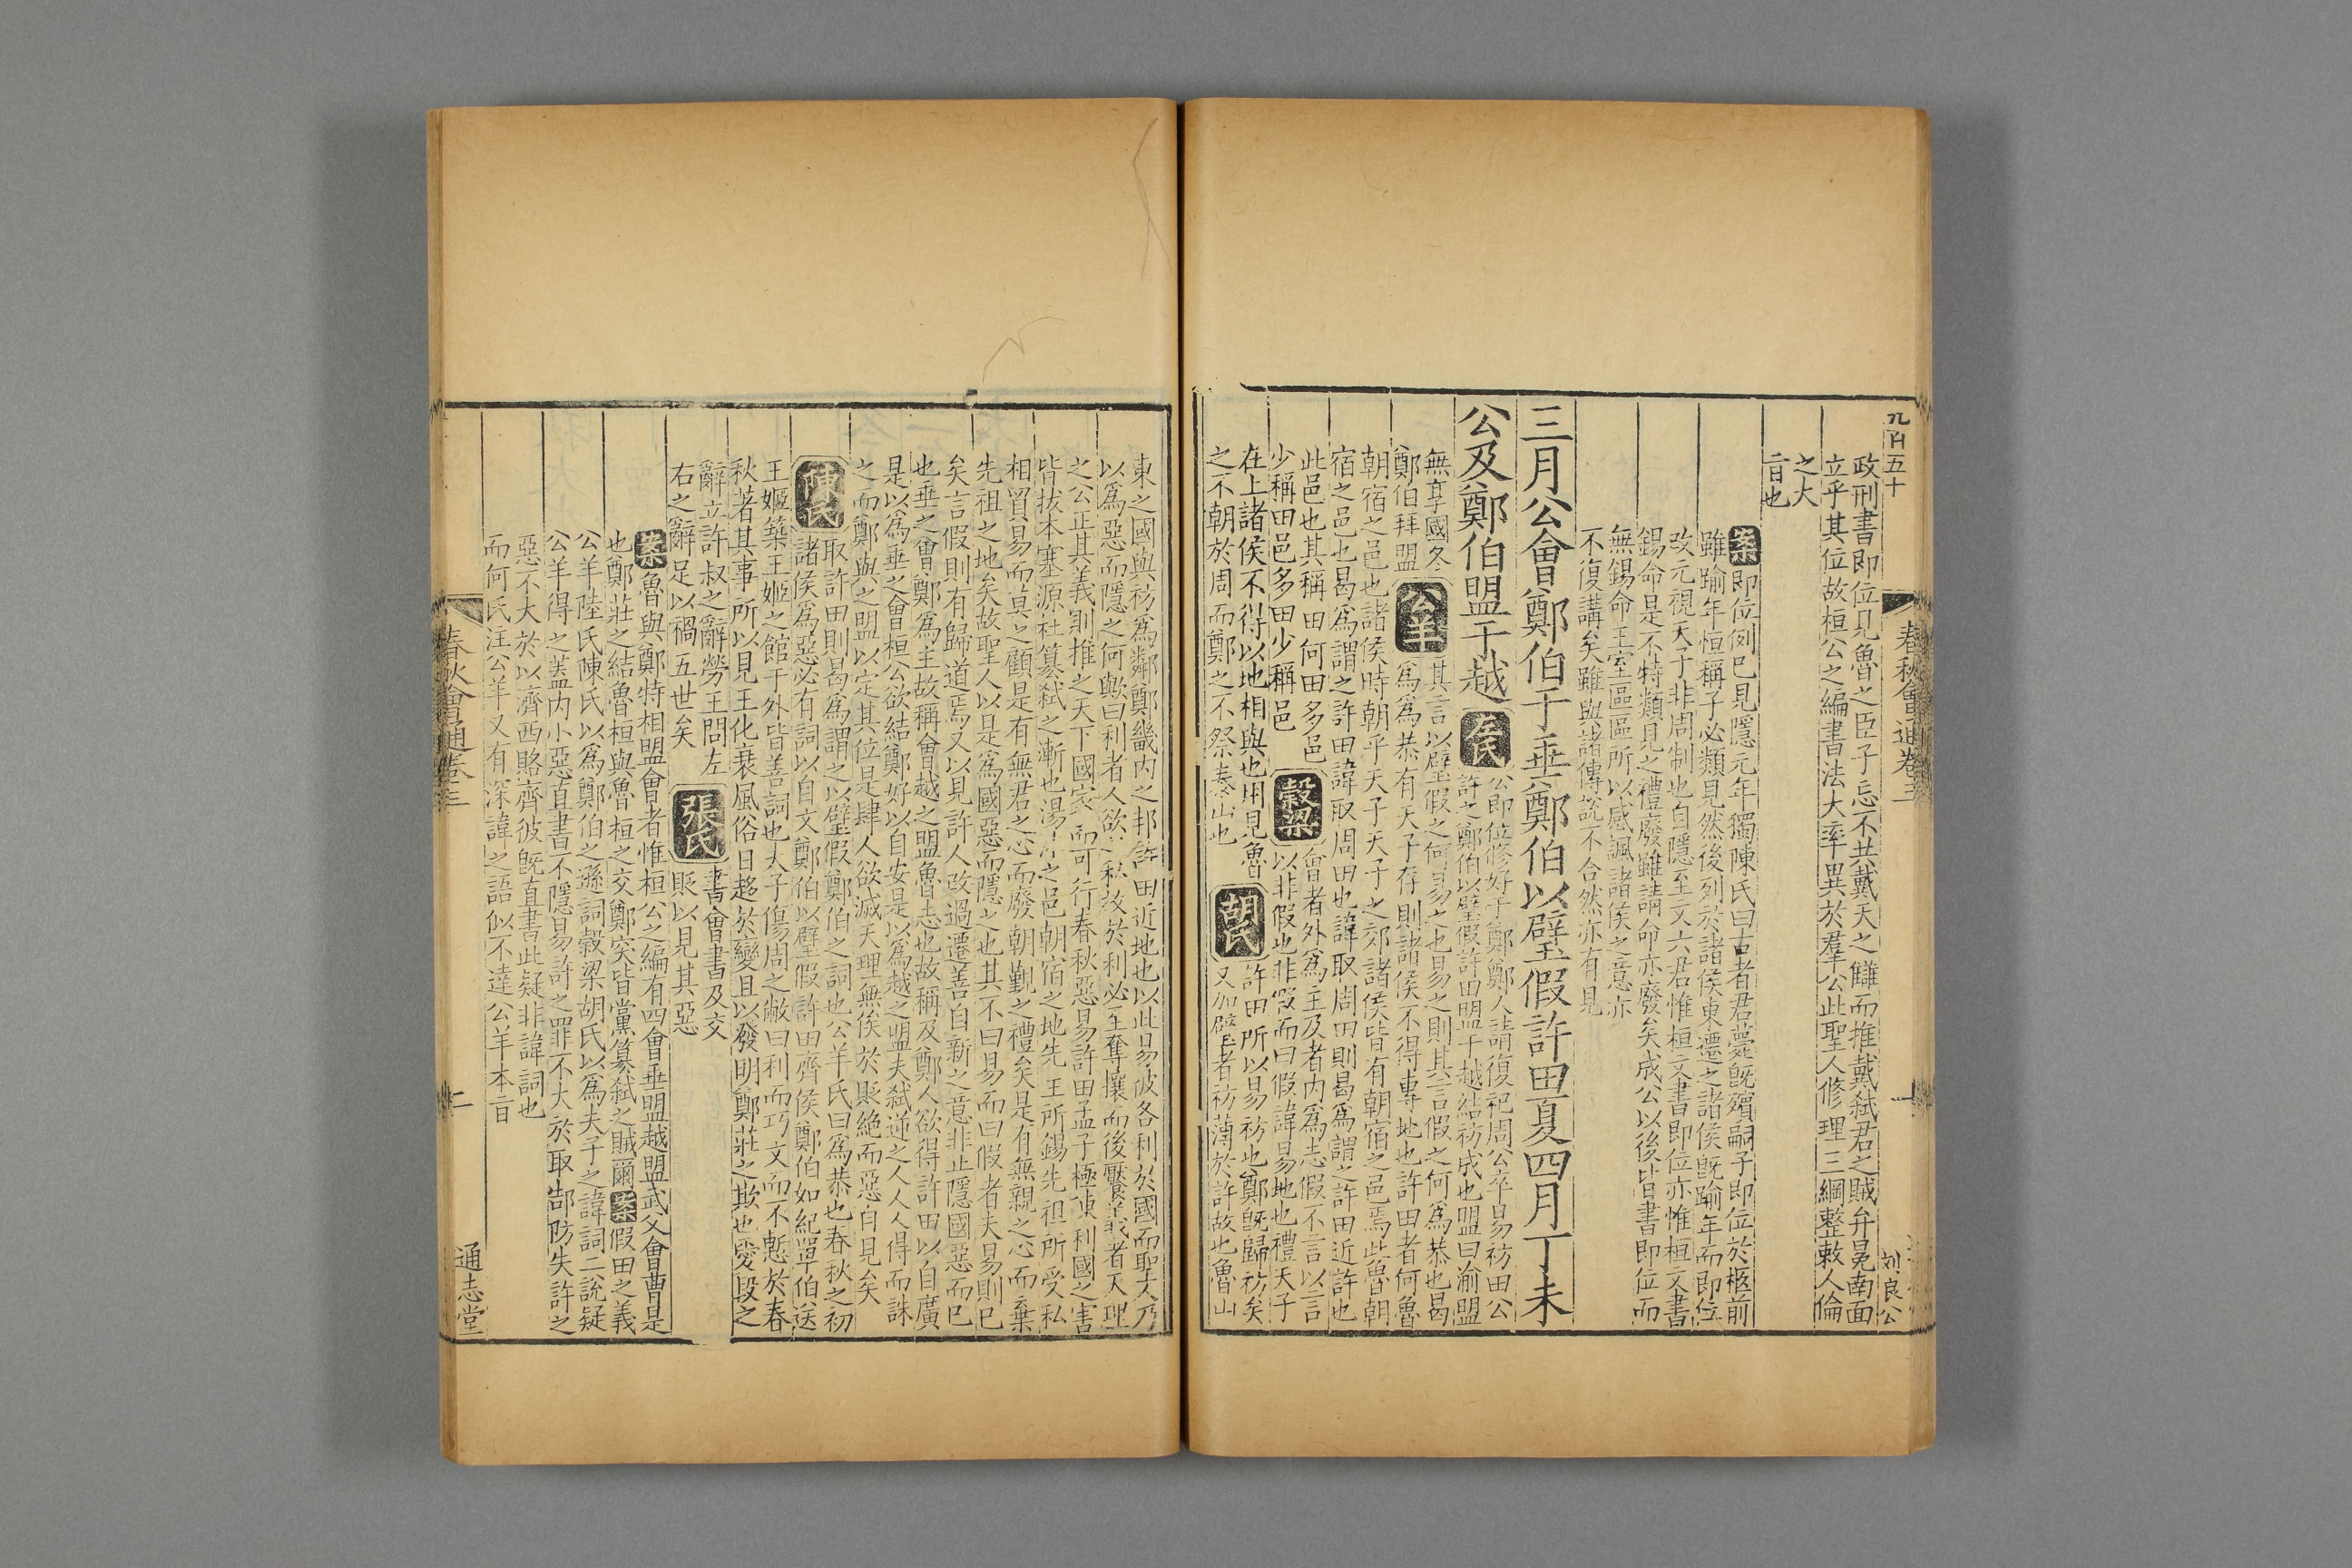 九百五十
春秋會通卷三
一
刘良公
政刑書即位見魯之臣子忘不共戴天之讎而推戴弑君之賊弁冕南面
立乎其位故桓公之編書法大率異於羣公此聖人修理三綱整敕人倫
之大
旨也
案即位例已見隱元年獨陳氏曰古者君薨旣殯嗣子即位於柩前
雖踰年恒稱子必類見然後列於諸侯東遷之諸侯旣踰年而即位
改元視天子非周制也自隱至文六君惟桓文書即位亦惟桓文書
錫命是不特類見之禮廢雖請命亦廢矣成公以後皆書即位而
無錫命王室區區所以感諷諸侯之意亦
不復講矣雖與諸傳說不合然亦有見
三月公會鄭伯于垂鄭伯以璧假許田夏四月丁未
公及鄭伯盟于越
左氏
公即位修好于鄭鄭人請復祀周公卒易祊田公
許之鄭伯以璧假許田盟于越結祊成也盟曰渝盟
無享國冬
鄭伯拜盟
公羊
其言以璧假之何易之也易之則其言假之何爲恭也曷
爲爲恭有天子存則諸侯不得專地也許田者何魯
朝宿之邑也諸侯時朝乎天子天子之郊諸侯皆有朝宿之邑焉此魯朝
宿之邑也曷爲謂之許田諱取周田也諱取周田則曷爲謂之許田近許也
此邑也其稱田何田多邑
少稱田邑多田少稱邑
穀梁
會者外爲主及者內爲志假不言以言
以非假也非假而曰假諱易地也禮天子
在上諸侯不得以地相與也用見魯
之不朝於周而鄭之不祭泰山也
胡氏
許田所以易祊也鄭旣歸祊矣
又加璧者祊薄於許故也魯山
東之國與祊爲鄰鄭畿内之邦許田近地也以此易彼各利於國而聖人乃
以爲惡而隱之何歟曰利者人欲之私放於利必至奪攘而後饜義者天理
之公正其義則推之天下國家而可行春秋惡易許田孟子極陳利國之害
皆拔本塞源杜篡弑之漸也湯沐之邑朝宿之地先王所錫先祖所受私
相貿易而莫之顧是有無君之心而廢朝覲之禮矣是有無親之心而棄
先祖之地矣故聖人以是爲國惡而隱之也其不曰易而曰假者夫易則已
矣言假則有歸道焉又以見許人改過遷善自新之意非止隱國惡而已
也垂之會鄭爲主故稱會越之盟魯志也故稱及鄭人欲得許田以自廣
是以爲垂之會桓公欲結鄭好以自安是以爲越之盟夫弑逆之人人得而誅
之而鄭與之盟以定其位是肆人欲滅天理無俟於貶絶而惡自見矣
陳氏
取許田則曷爲謂之以璧假鄭伯之詞也公羊氏曰爲恭也春秋之初
諸侯爲惡必有詞以自文鄭伯以璧假許田齊侯鄭伯如紀單伯送
王姬築王姬之館于外皆善詞也太子傷周之敝曰利而巧文而不慙於春
秋著其事所以見王化衰風俗日趍於變且以發明鄭莊之欺也愛段之
辭立許叔之辭勞王問左
右之辭足以禍五世矣
張氏
書會書及交
貶以見其惡
案魯與鄭特相盟會者惟桓公之編有四會垂盟越盟武父會曹是
也鄭莊之結魯桓與魯桓之交鄭突皆黨篡弑之賊爾案假田之義
公羊陸氏陳氏以爲鄭伯之遜詞穀梁胡氏以爲夫子之諱詞二說疑
公羊得之蓋内小惡直書不隱易許之罪不大於取郜防失許之
惡不大於以濟西賂齊彼旣直書此疑非諱詞也
而何氏汪公羊又有深諱之語似不達公羊本旨
春秋會通卷三
二
通志堂